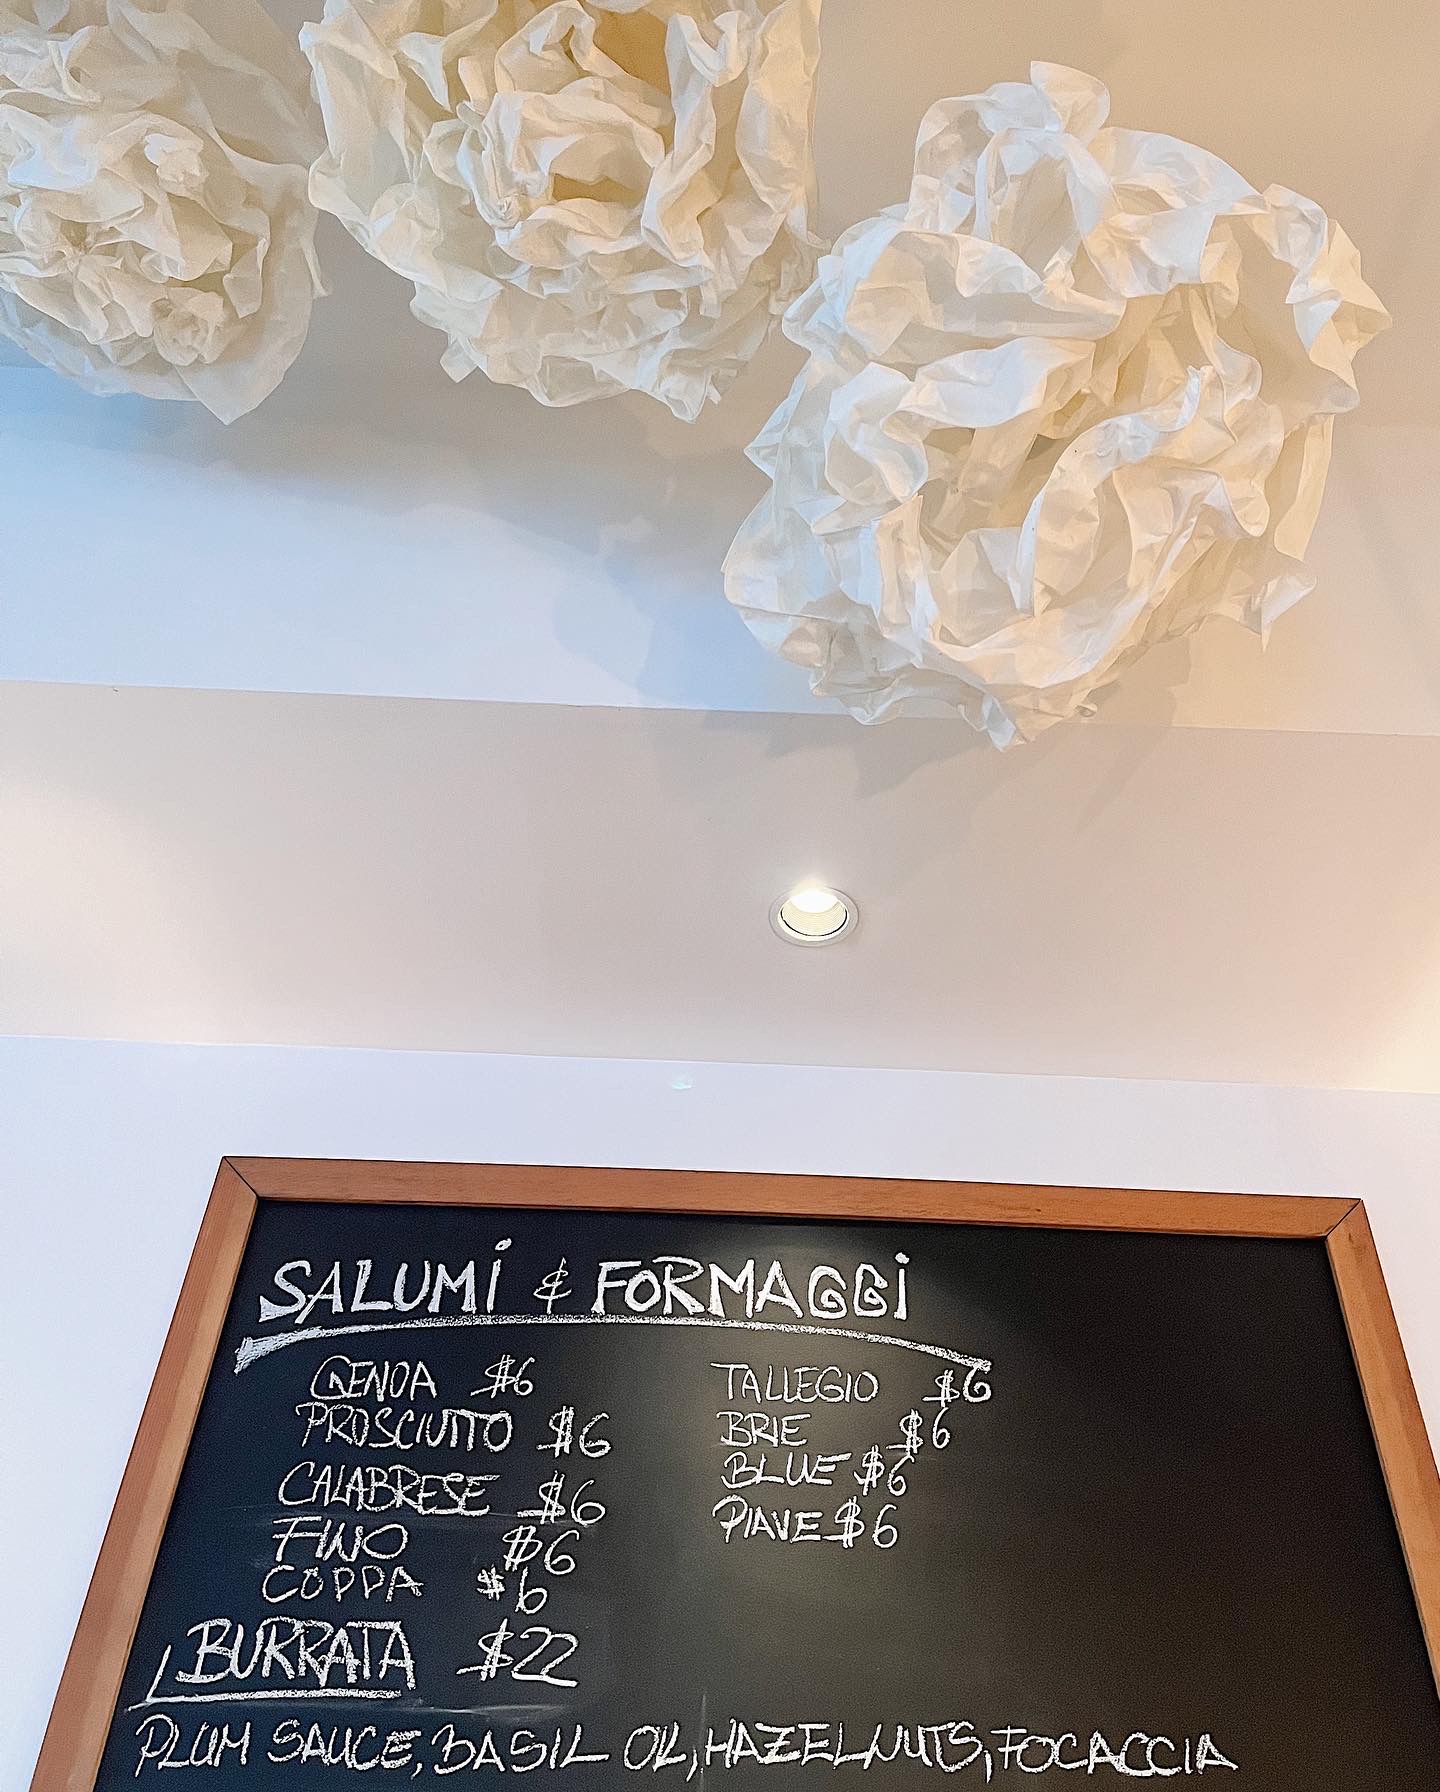 SALUMI & FORMAGGI
GENOA $6
PROSCIUTTO $6
CALABRESE $6
FINO $6
COPPA $6
TALLEGIO $6
BRIE $6
BLUE $6
PIAVE $6
BURRATA $22
PLUM SAUCE, BASIL OIL, HAZELNUTS, FOCACCIA